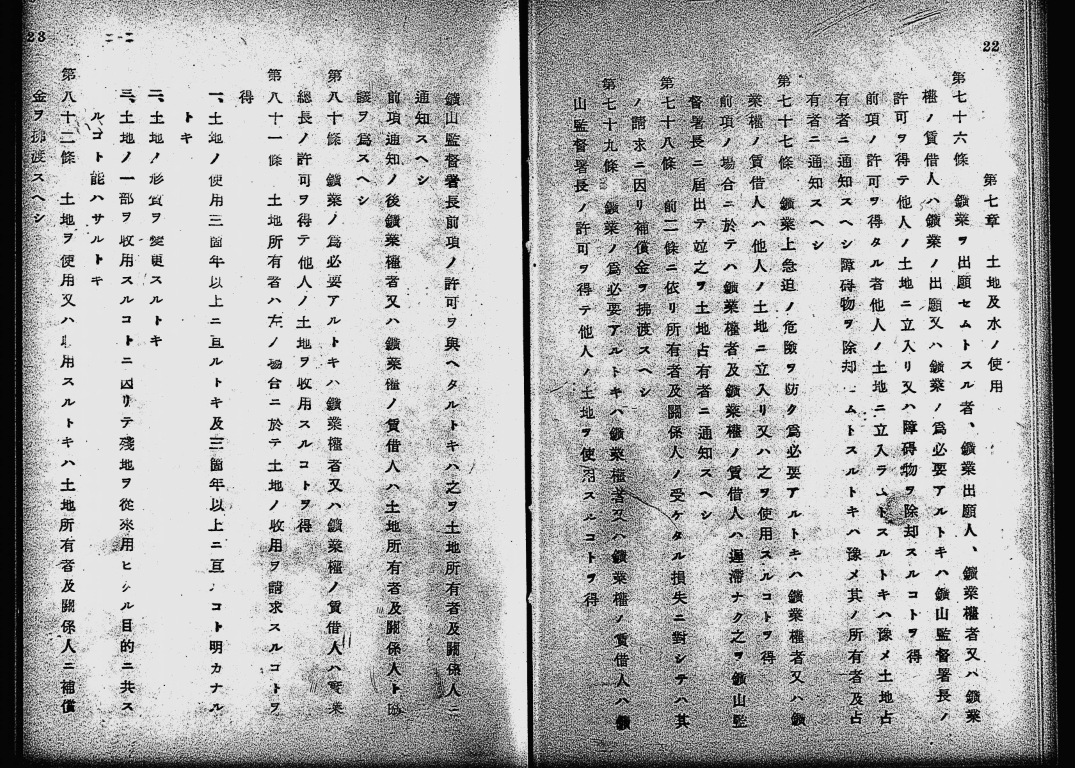 22
第七章 土地及水ノ使用
第七十六條 鑛業ヲ出願セムトスル者、鑛業出願人、鑛業權者又ハ鑛業
權ノ賃借人ハ鑛業ノ出願又ハ鑛業ノ爲必要アルトキハ鑛山監督署長ノ
許可ヲ得テ他人ノ土地ニ立入リ又ハ障碍物ヲ除却スルコトヲ得
前項ノ許可ヲ得タル者他人ノ土地ニ立入ラムトスルトキハ豫メ土地占
有者ニ通知スヘシ障碍物ヲ除却 ムトスルトキハ豫メ其ノ所有者及占
有者ニ通知スヘシ
第七十七條 鑛業上急迫ノ危險ヲ防ク爲必要アルトキハ鑛業權者又ハ鑛
業權ノ賃借人ハ他人ノ土地ニ立入リ又ハ之ヲ使用スルコトヲ得
前項ノ場合ニ於テハ鑛業權者及鑛業權ノ賃借人ハ遲滯ナク之ヲ鑛山監
督署長ニ屆出テ竝之ヲ土地占有者ニ通知スヘシ
第七十八條 前二條ニ依リ所有者及關係人ノ受ケタル損失ニ對シテハ其
ノ請求ニ因リ補償金ヲ拂渡スヘシ
第七十九條 鑛業ノ爲必要アルトキハ鑛業權者又ハ鑛業權ノ賃借人ハ鑛
山監督署長ノ許可ヲ得テ他人ノ土地ヲ使用スルコトヲ得
鑛山監督署長前項ノ許可ヲ與ヘタルトキハ之ヲ土地所有者及關係人ニ
通知スヘシ
前項通知ノ後鑛業權者又ハ鑛業權ノ賃借人ハ土地所有者及關係人ト協
議ヲ爲スヘシ
第八十條 鑛業ノ爲必要アルトキハ鑛業權者又ハ鑛業權ノ賃借人ハ
總長ノ許可ヲ得テ他人ノ土地ヲ收用スルコトヲ得
第八十一條 土地所有者ハ左ノ場合ニ於テ土地ノ收用ヲ請求スルコトヲ
得
一、土地ノ使用三箇年以上ニ亘ルトキ及三箇年以上ニ亘 コト明カナル
トキ
二、土地ノ形質ヲ變更スルトキ
三、土地ノ一部ヲ收用スルコトニ因リテ殘地ヲ從來用ヒシル目的ニ共ス
ルコト能ハサルトキ
第八十二條 土地ヲ使用又ハ收用スルトキハ土地所有者及關係人ニ補償
金ヲ拂渡スヘシ
二二
23